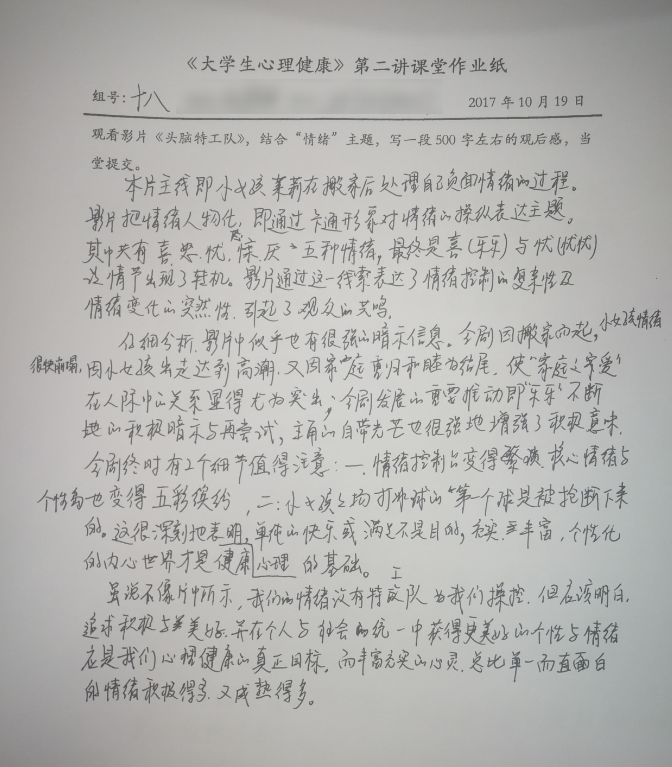 《大学生心理健康》第二讲课堂作业纸
组号：十八 2017年10月19日
观看影片《头脑特工队》，结合“情绪”主题，写一段500字左右的观后感，当
堂提交。
本片主线即小女孩茉莉在搬家后处理自己负面情绪的过程。
影片把情绪人物化，即通过卡通形象对情绪的操纵表达主题。
其中共有喜、怒、忧、惊、厌五种情绪，最终是喜(乐乐)与忧(忧忧)
让情节出现了转机。影片通过这一线索表达了情绪控制的复杂性及
情绪变化的突然性，引起了观众的共鸣。
仔细分析，影片中似乎也有很强的暗示信息。全剧因搬家而起，小女孩情绪
很快崩塌，因小女孩出走达到高潮，又因家庭重归和睦为结尾，使“家庭之宠爱”
在人际中的关系显得尤为突出；全剧发展的重要推动即“乐乐”不断
地的积极暗示与再尝试，主角的自带光芒也很强地增强了积极意味。
全剧终时有2个细节值得注意：一、情绪控制台变得繁琐，核心情绪与
个性岛也变得五彩缤纷，二：小女孩上场打冰球的“第一个球是被抢断下来
的。这很深刻地表明，单纯的快乐或满足不是目的，充实、丰富，个性化
的内心世界才是健康心理的基础。
虽说不像片中所示，我们的情绪没有特工队为我们操控，但应该明白，
追求积极与美好，并在个人与社会的统一中获得更美好的个性与情绪
应是我们心理健康的真正目标，而丰富充实的心灵，总比单一而直面白
的情绪积极得多，又成熟得多。